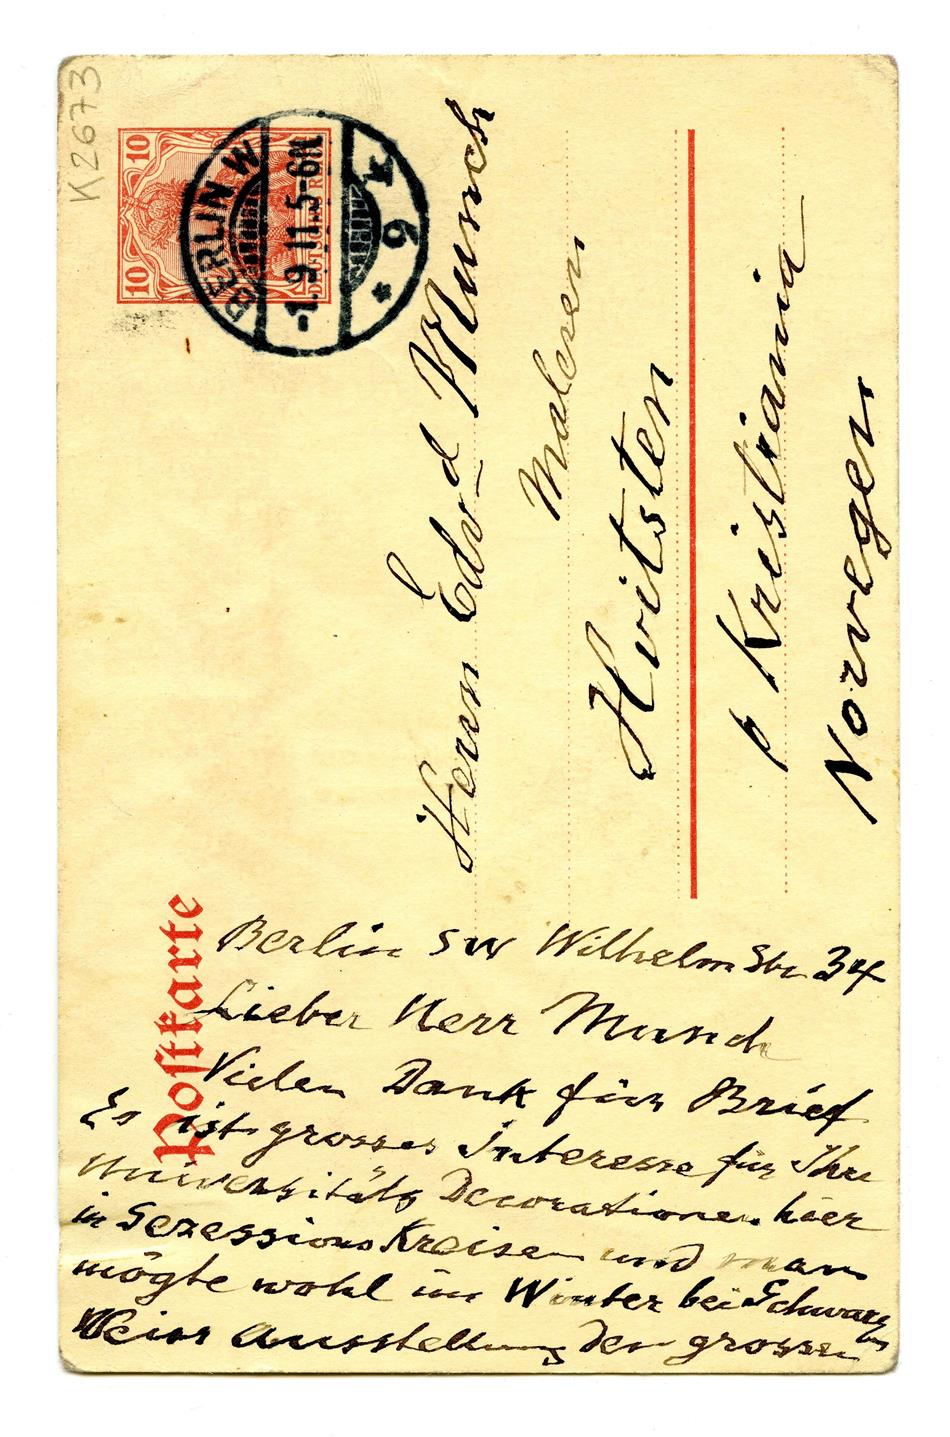 K2673
10 10
BERLIN W
-1.9.11.5-6N.
* 9 k
DEUTSCHES REICH
Postkarte
Herrn Edvd Munch
Maleren
Hvitsten
p Kristiania
Norwegen
Berlin SW Wilhelm Str 34
Lieber Herr Munch
Vielen Dank für Brief
Es ist grosses Interesse für Ihre
Universitäts Decorationen hier
in Sezessions Kreisen und man
mögte wohl im Winter bei Schwarz
Weiss Ausstellung den grossen